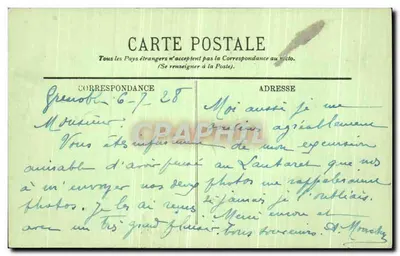 CARTE POSTALE
Tous les Pays étrangers n'acceptent pas la Correspondance au recto.
(Se renseigner à la Poste).
CORRESPONDANCE
ADRESSE
Grenoble 6-7-28
Monsieur,
Vous êtes
aimable d'avoir pensé
à m'envoyer nos deux
photos. Je les ai reçues
avec un très grand plaisir.
Moi aussi je me
agréablement
de mon excursion
au Lautaret que nos
photos me rappelleraient
si jamais je l'oubliais.
Merci encore et
bons souvenirs.
CPAPHIL